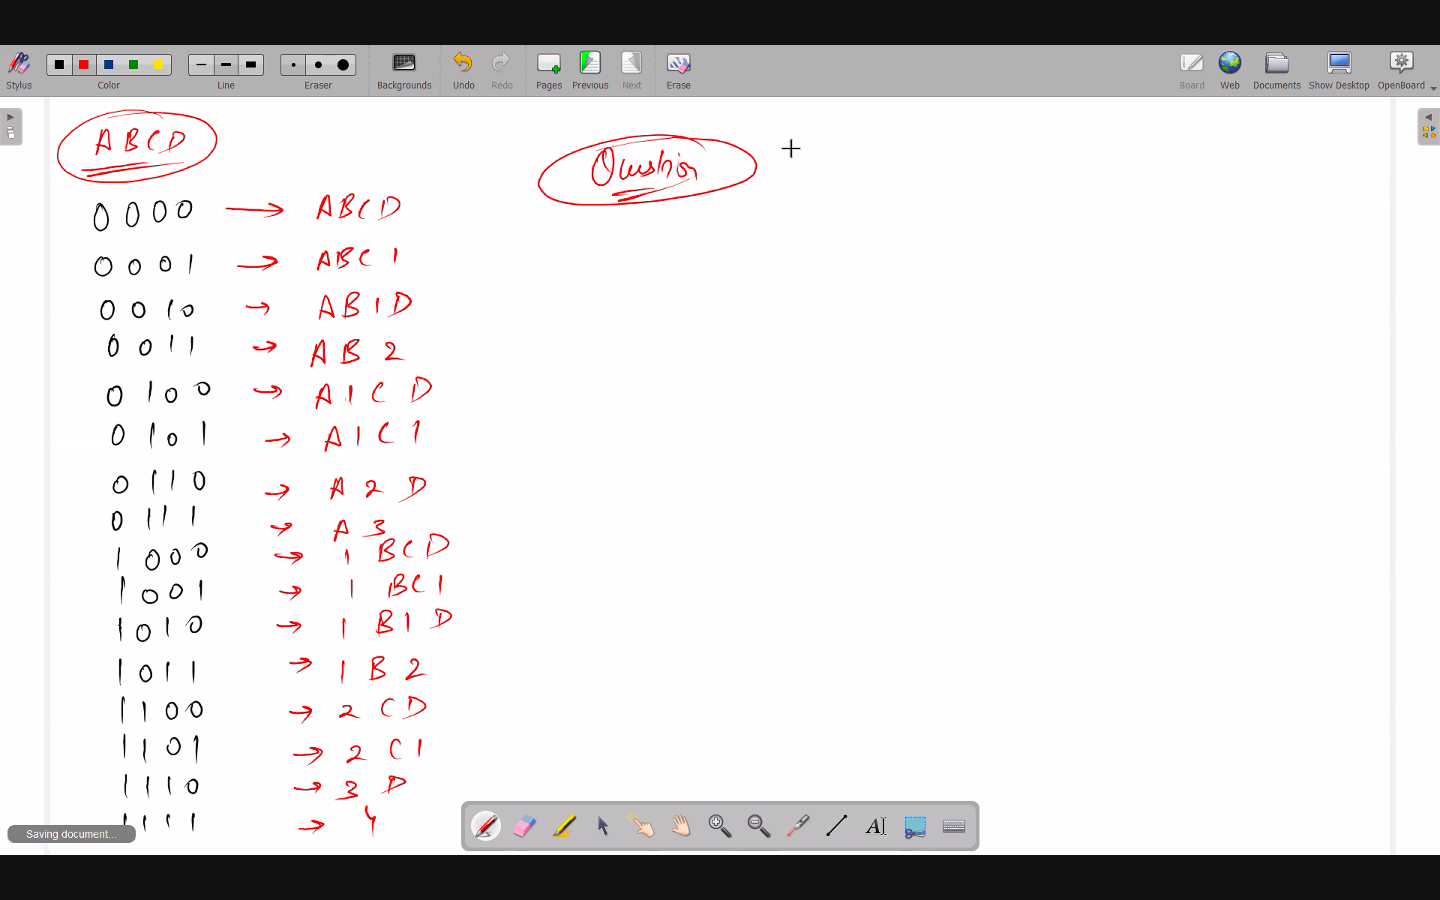 Stylus
Color
Line
Eraser
Backgrounds
Undo
Redo
Pages
Previous
Next
Erase
Board
Web
Documents
Show Desktop
OpenBoard
ABCD
Question
0000 → ABCD
0001 → ABC1
0010 → AB1D
0011 → AB2
0100 → A1CD
0101 → A1C1
0110 → A2D
0111 → A3
1000 → 1BCD
1001 → 1BC1
1010 → 1B1D
1011 → 1B2
1100 → 2CD
1101 → 2C1
1110 → 3D
1111 → 4
Saving document...